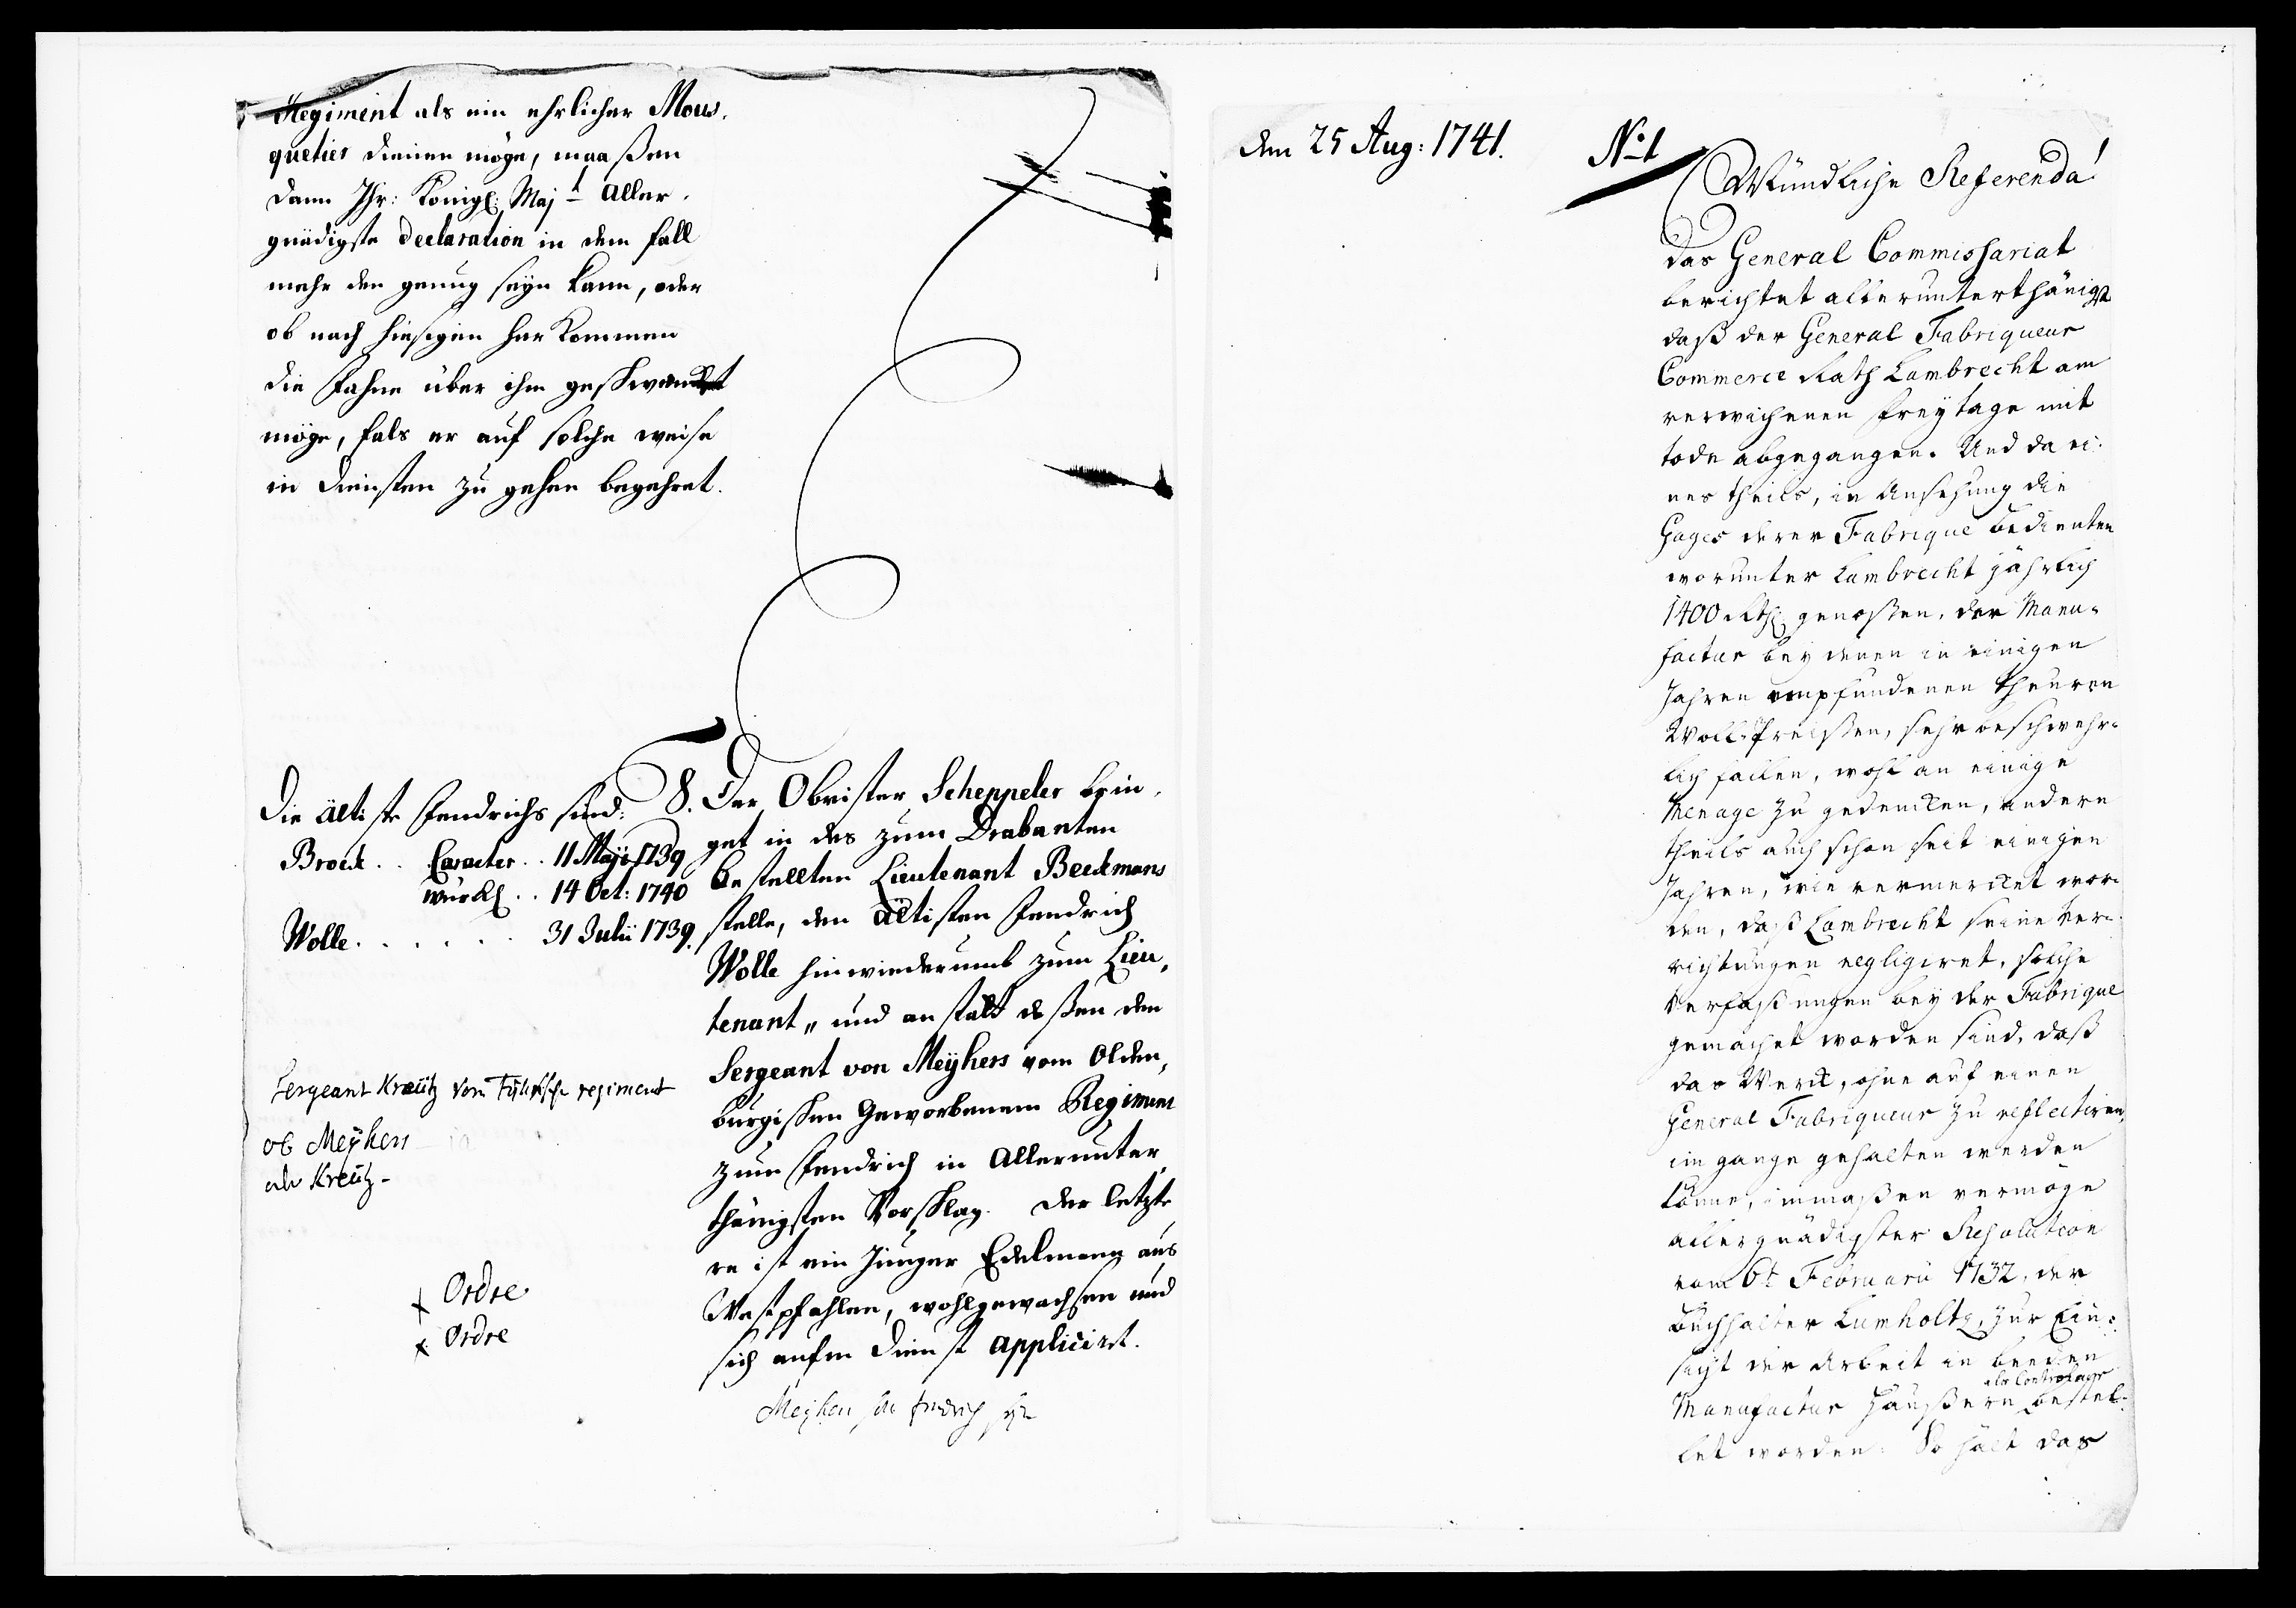 Regiment als ein ehrlicher Mous-
quetier dienen möge, maaßen
dann Ihr: Königl: Majt aller-
gnädigste declaration in dem fall
mehr den genug seyn kann, oder
ob nach hiesigen herkommen
die Fahne über ihm geschwenket
möge, fals er auf solche weise
in diensten zu gehen begehret.
Die ältiste Fendrichs sind:
Brock .. Caracter .. 11 Maji 1739
würkl .. 14 Oct: 1740
Wolle . . . . . . 31 Julii 1739.
Sergeant Kreütz vom regiment
ob Meÿhers
oder Kreütz-
x Ordre
x Ordre
8. Der Obrister Scheppeler brin-
get in des zum Drabanten
bestellten Lieutenant Beckmans
stelle, den ältisten Fendrich
Wolle hinwiederumb zum Lieu-
tenant, und anstatt deßen den
Sergeant von Meÿhers vom Olden-
burgischen Geworbenem Regiment
zum Fendrich in Allerunter-
thänigsten Vorschlag. Der letzte-
re ist ein Junger Edelmann aus
Westpfahlen, wohlgewachsen und
sich aufm dienst appliciret.
Meÿhers soll fendrich seyn
dem 25 Aug: 1741.
No. 1
Mündliche Referenda!
Das General Commissariat
berichtet allerunterthänigst
daß der General Fabriqueur
Commerce Rath Lambrecht am
verwichenen freytage mit
tode abgegangen. Und da ei-
nes theils, in Ansehung die
Gages derer Fabrique bedienten
worunter Lambrecht jährlich
1400 Rthl genoßen, der Manu-
factur bey denen in einigen
Jahren empfundenen theuren
Woll-Preißen, sehr beschwehr-
lich fallen, wohl an einige
Menage zu gedencken, andern
theils auch schon seit einigen
Jahren, wie vermercket wor-
den, daß Lambrecht seine Ver-
richtungen negligiret, solche
Verfaßungen bey der Fabrique
gemachet worden sind, daß
das Werck, ohne auf einen
General Fabriqueur zu reflectiren,
im gange gehalten werden
könne, immaßen vermöge
allergnädigster Resolution
vom 6t Februarii 1732, der
Buchhalter Lumholtz, zur Ein-
sicht der Arbeit in beeden
als Controleur
Manufactur Häußern bestel-
let worden: So hält das